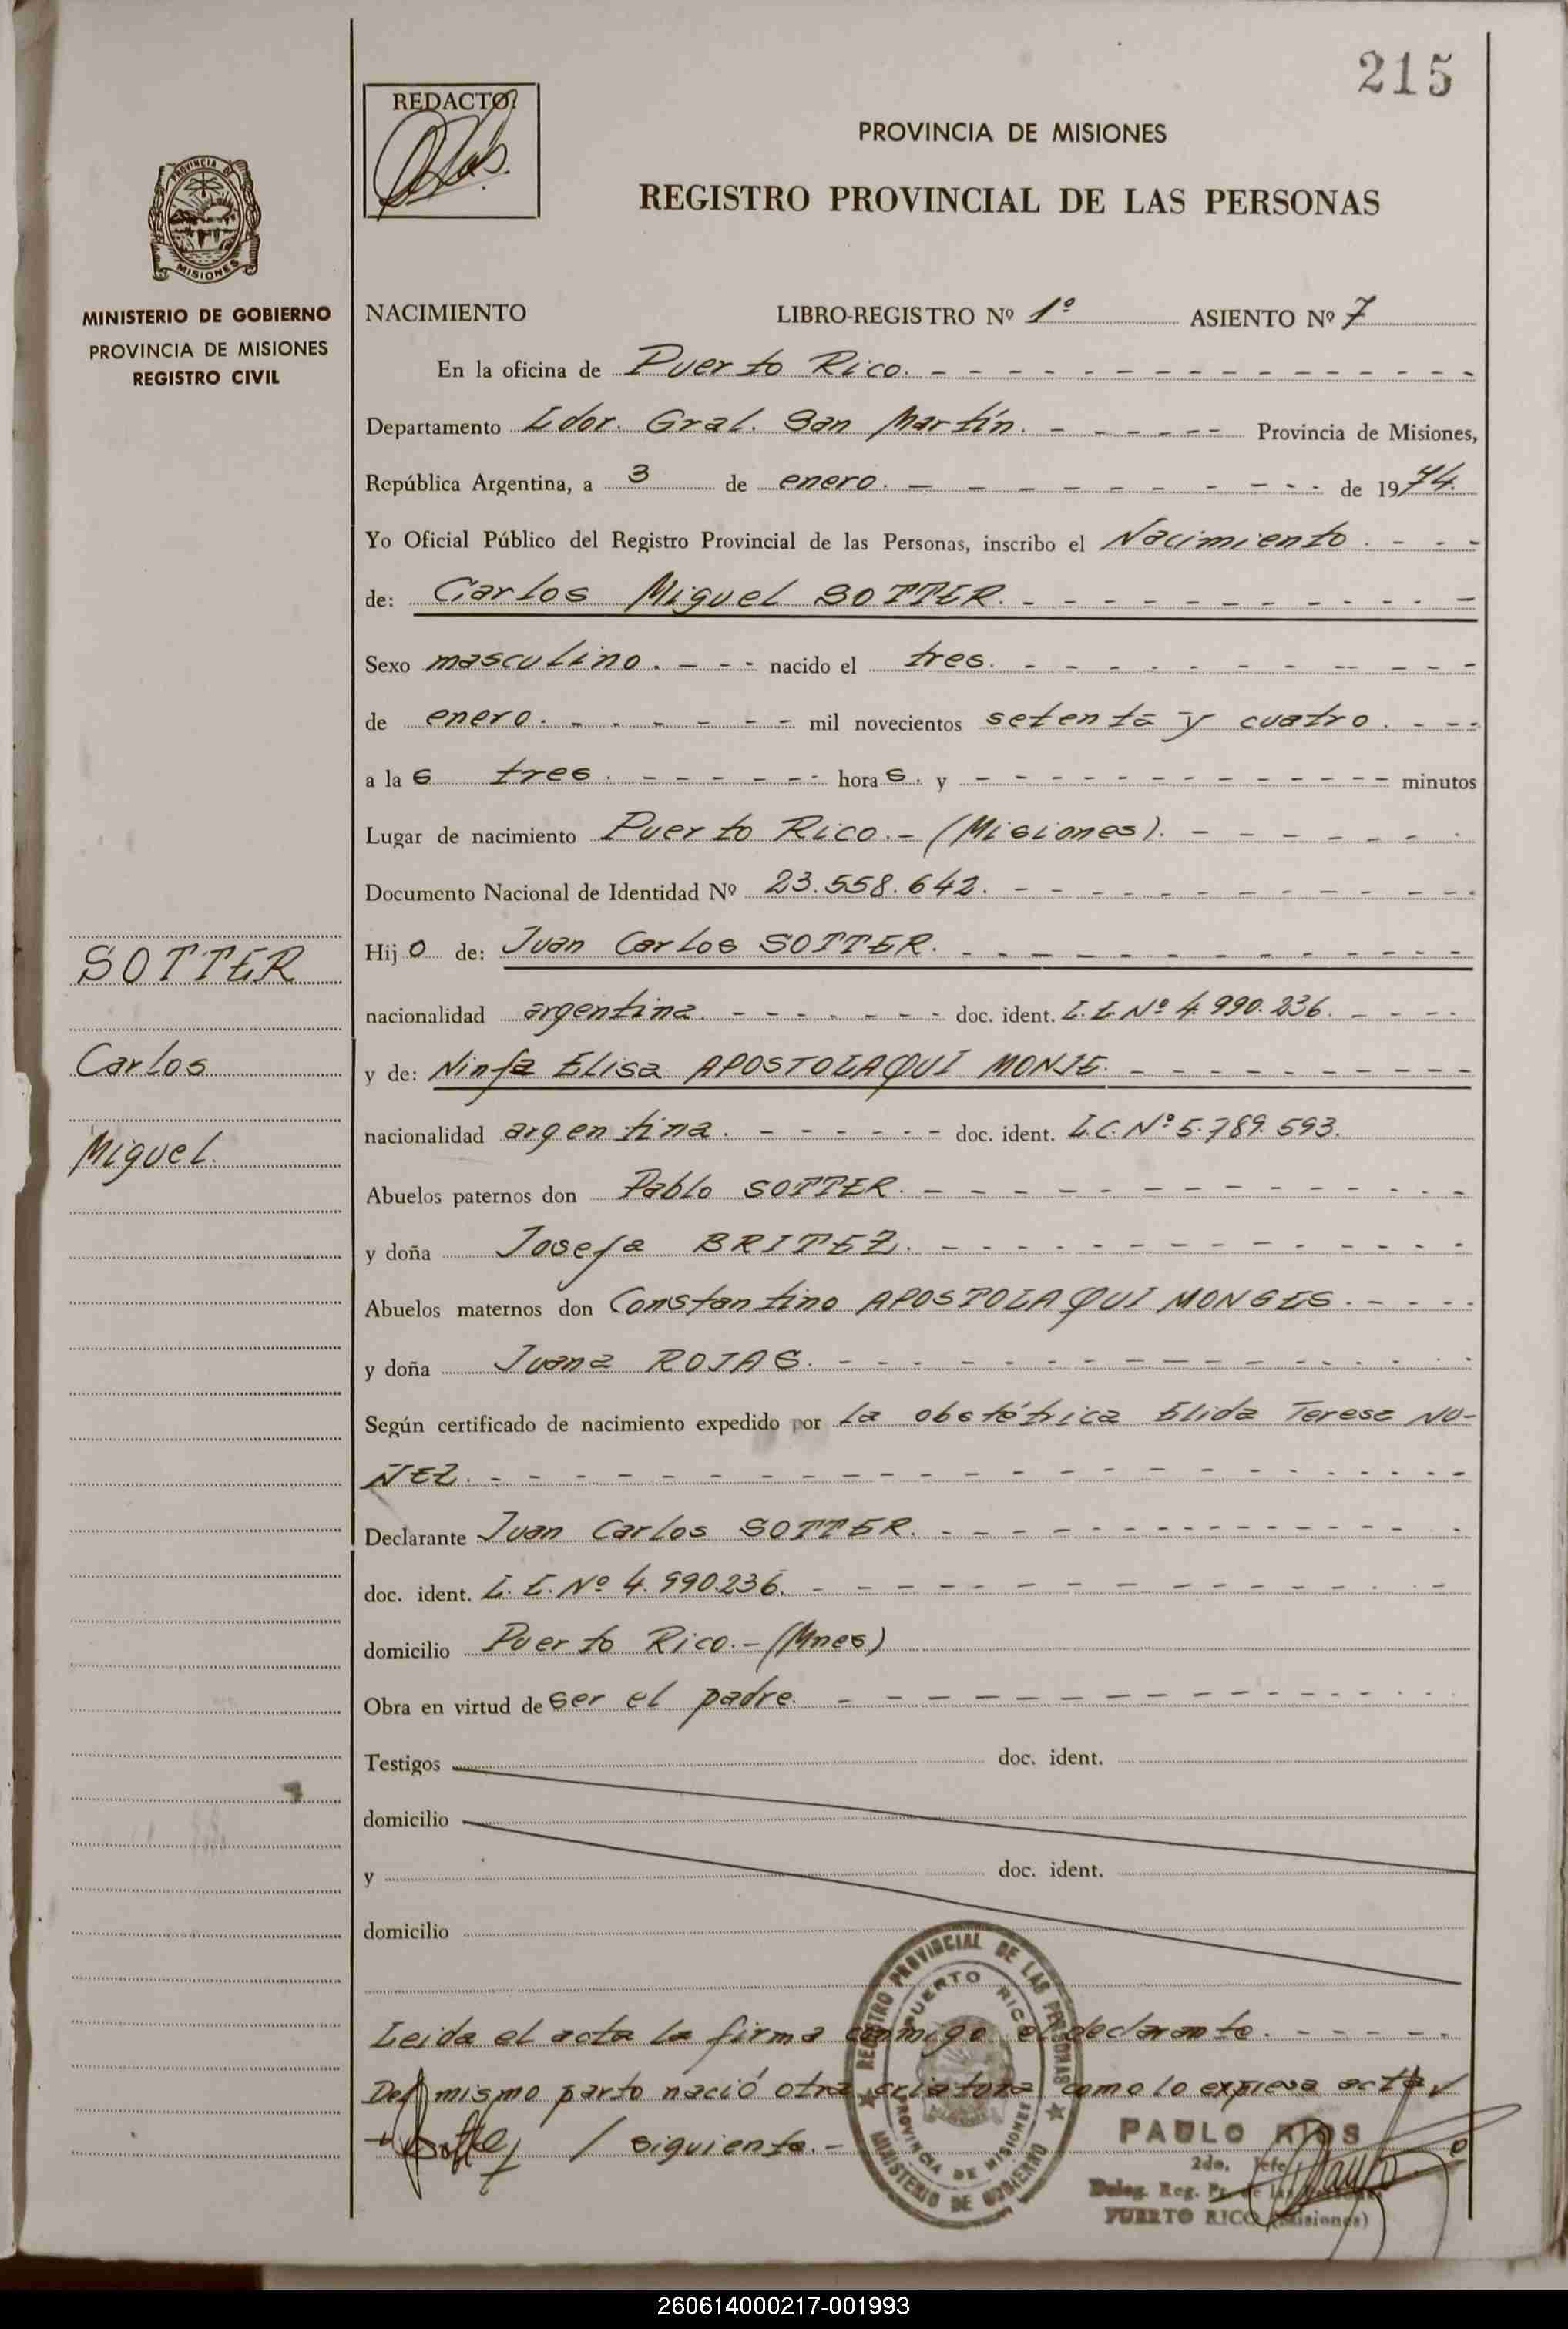 215
REDACTO:
PROVINCIA DE MISIONES
REGISTRO PROVINCIAL DE LAS PERSONAS
PROVINCIA DE
MISIONES
MINISTERIO DE GOBIERNO
PROVINCIA DE MISIONES
REGISTRO CIVIL
NACIMIENTO LIBRO-REGISTRO Nº 1º ASIENTO Nº 7
En la oficina de Puerto Rico. - - - - - - - - - - - - - -
Departamento Ldor. Gral. San Martín. - - - - - - Provincia de Misiones,
República Argentina, a 3 de enero. - - - - - - - - - - de 1974.
Yo Oficial Público del Registro Provincial de las Personas, inscribo el Nacimiento. - - -
de: Carlos Miguel SOTTER. - - - - - - - - - - -
Sexo masculino. - - - nacido el tres. - - - - - - - - - - -
de enero. - - - - - - mil novecientos setenta y cuatro. - - -
a las tres. - - - - - - horas. y - - - - - - - - - - - - minutos
Lugar de nacimiento Puerto Rico. - (Misiones). - - - - - - -
Documento Nacional de Identidad Nº 23.558.642. - - - - - - - - - - - -
SOTTER
Carlos
Miguel.
Hijo de: Juan Carlos SOTTER. - - - - - - - - - - - -
nacionalidad argentina. - - - - - - doc. ident. L.E. Nº 4.990.236. - - - -
y de: Ninfa Elisa APOSTOLAQUI MONJE. - - - - - - - - -
nacionalidad argentina. - - - - - - doc. ident. L.C. Nº 5.789.593.
Abuelos paternos don Pablo SOTTER. - - - - - - - - - - - - -
y doña Josefa BRITEZ. - - - - - - - - - - - - -
Abuelos maternos don Constantino APOSTOLAQUI MONGES. - - - -
y doña Juana ROJAS. - - - - - - - - - - - - - -
Según certificado de nacimiento expedido por la obstétrica Elida Teresa NU-
ÑEZ. - - - - - - - - - - - - - - - - - - - - - -
Declarante Juan Carlos SOTTER. - - - - - - - - - - - - -
doc. ident. L.E. Nº 4.990.236. - - - - - - - - - - - - - -
domicilio Puerto Rico. - (Mnes)
Obra en virtud de ser el padre. - - - - - - - - - - - - - -
Testigos doc. ident.
domicilio
y doc. ident.
domicilio
Leida el acta la firma conmigo el declarante. - - - - -
Del mismo parto nació otra criatura como lo expresa acta /
/ siguiente. -
REGISTRO PROVINCIAL DE LAS PERSONAS
PUERTO RICO
PROVINCIA DE MISIONES
MINISTERIO DE GOBIERNO
PAULO RIOS
2do. Jefe
Deleg. Reg. P. de las Personas
PUERTO RICO (Misiones)
260614000217-001993